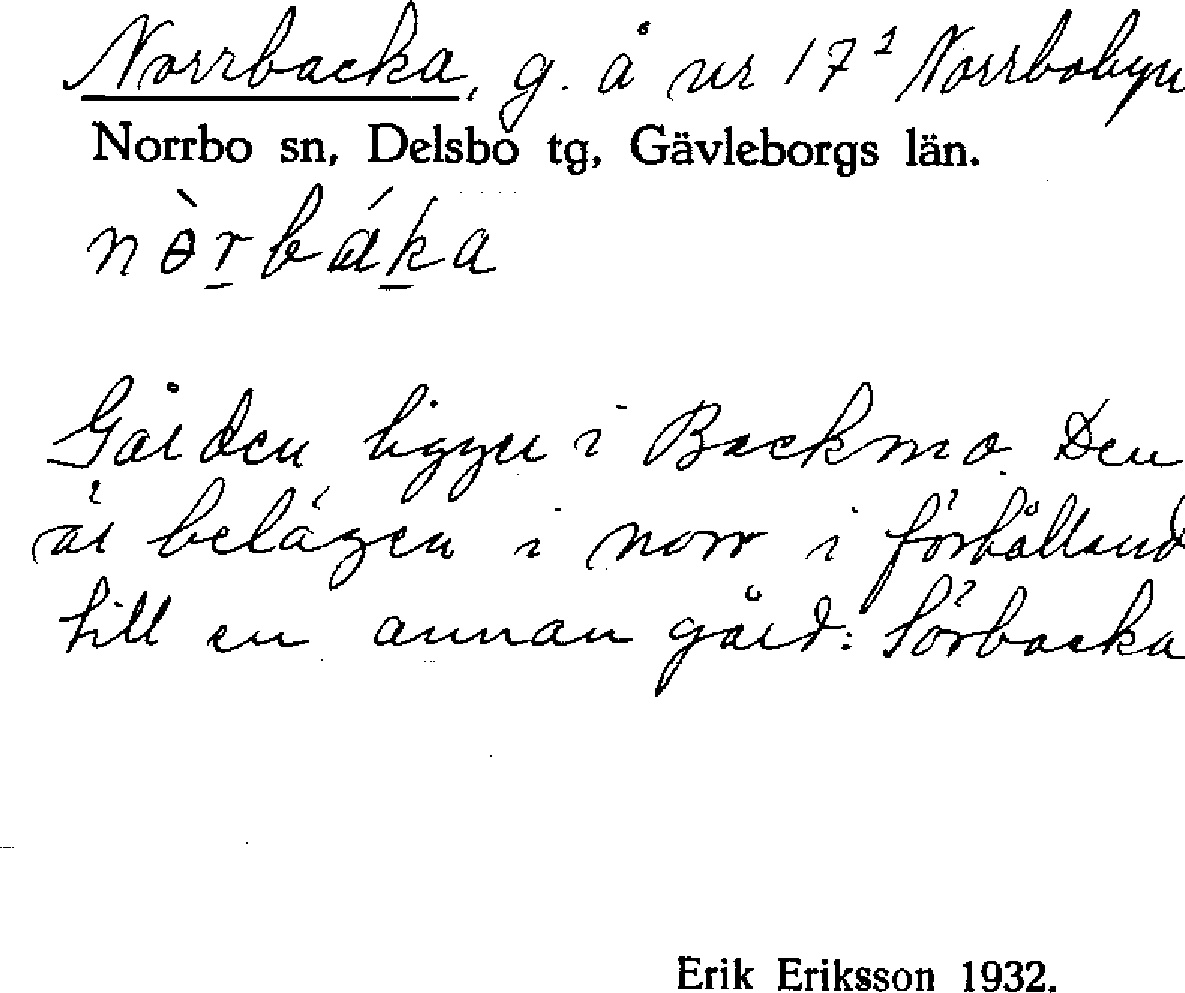 Norrbacka, g. å nr 17¹ Norrbobyn
Norrbo sn, Delsbo tg, Gävleborgs län.
nɵ̀r̲bák̲a
Gården ligger i Backmo. Den
är belägen i norr i förhålland
till en annan gård: Sörbacka
Erik Eriksson 1932.